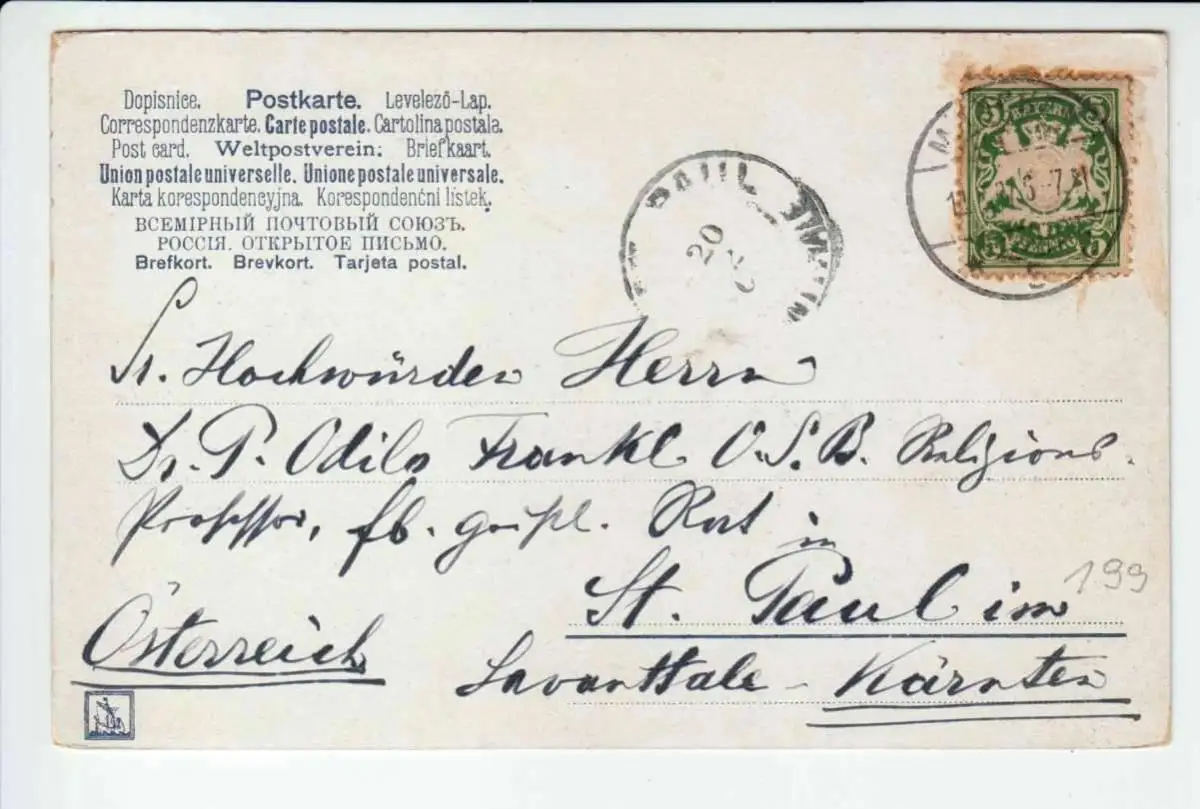 Dopisnice. Postkarte. Levelező-Lap.
Correspondenzkarte. Carte postale. Cartolina postala.
Post card. Weltpostverein: Briefkaart.
Union postale universelle. Unione postale universale.
Karta korespondencyjna. Korespondenční lístek.
ВСЕМІРНЫЙ ПОЧТОВЫЙ СОЮЗЪ.
РОССІЯ. ОТКРЫТОЕ ПИСЬМО.
Brefkort. Brevkort. Tarjeta postal.
5 BAYERN 5
5 PFENNIG 5
PAUL
20
Sr. Hochwürden Herrn
Dr. P. Odilo Frankl O.S.B. Religions-
Professor, fb. geistl. Rat in
St. Paul im
199
Österreich
Lavanttale - Kärnten